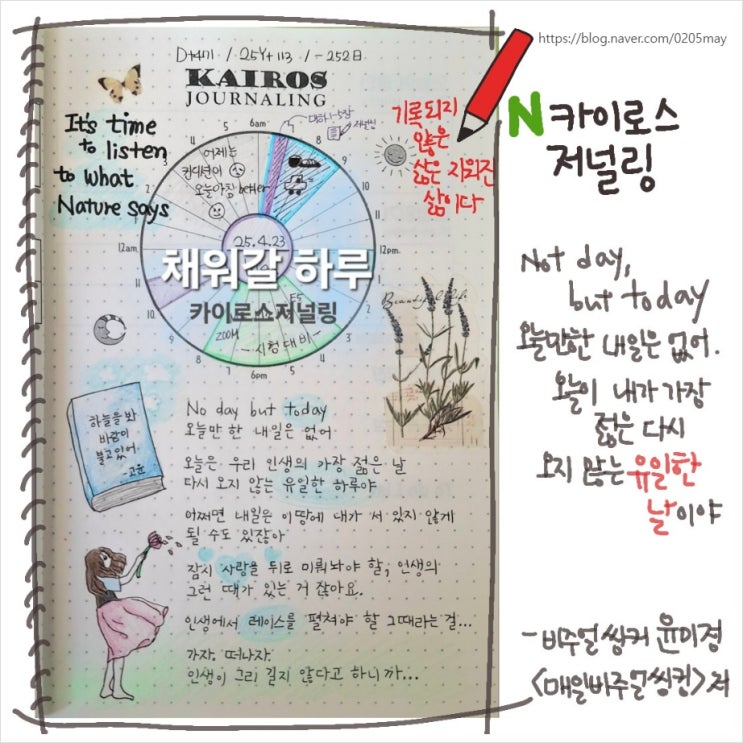 https://blog.naver.com/0205may
D+471 / 25Y+113 / -252日
KAIROS
JOURNALING
It's time
to listen
to what
Nature says
기록되지
않은
삶은 지워진
삶이다
N 카이로스
저널링
4
5
6am
7
8
9
10
11
12pm
1
2
3
4
5
6pm
7
8
9
10
11
12am
1
2
3
어제는
컨디션이
오늘아침 better
25.4.23
채워갈 하루
카이로스저널링
ZOOM
-시험대비-
Beautiful life
하늘을 봐
바람이
불고있어
-고윤
No day but today
오늘만 한 내일은 없어
오늘은 우리 인생의 가장 젊은 날
다시 오지 않는 유일한 하루야
어쩌면 내일은 이땅에 내가 서 있지 않게
될 수도 있잖아
잠시 사랑을 뒤로 미뤄놔야 할, 인생의
그런 때가 있는 거 잖아요.
인생에서 레이스를 펼쳐야 할 그때라는 걸...
가자. 떠나자.
인생이 그리 길지 않다고 하니까...
Not day,
but today
오늘만한 내일은 없어.
오늘이 내가 가장
젊은 다시
오지 않는 유일한
날이야
-비주얼씽커 윤미경
<매일비주얼씽킹>저